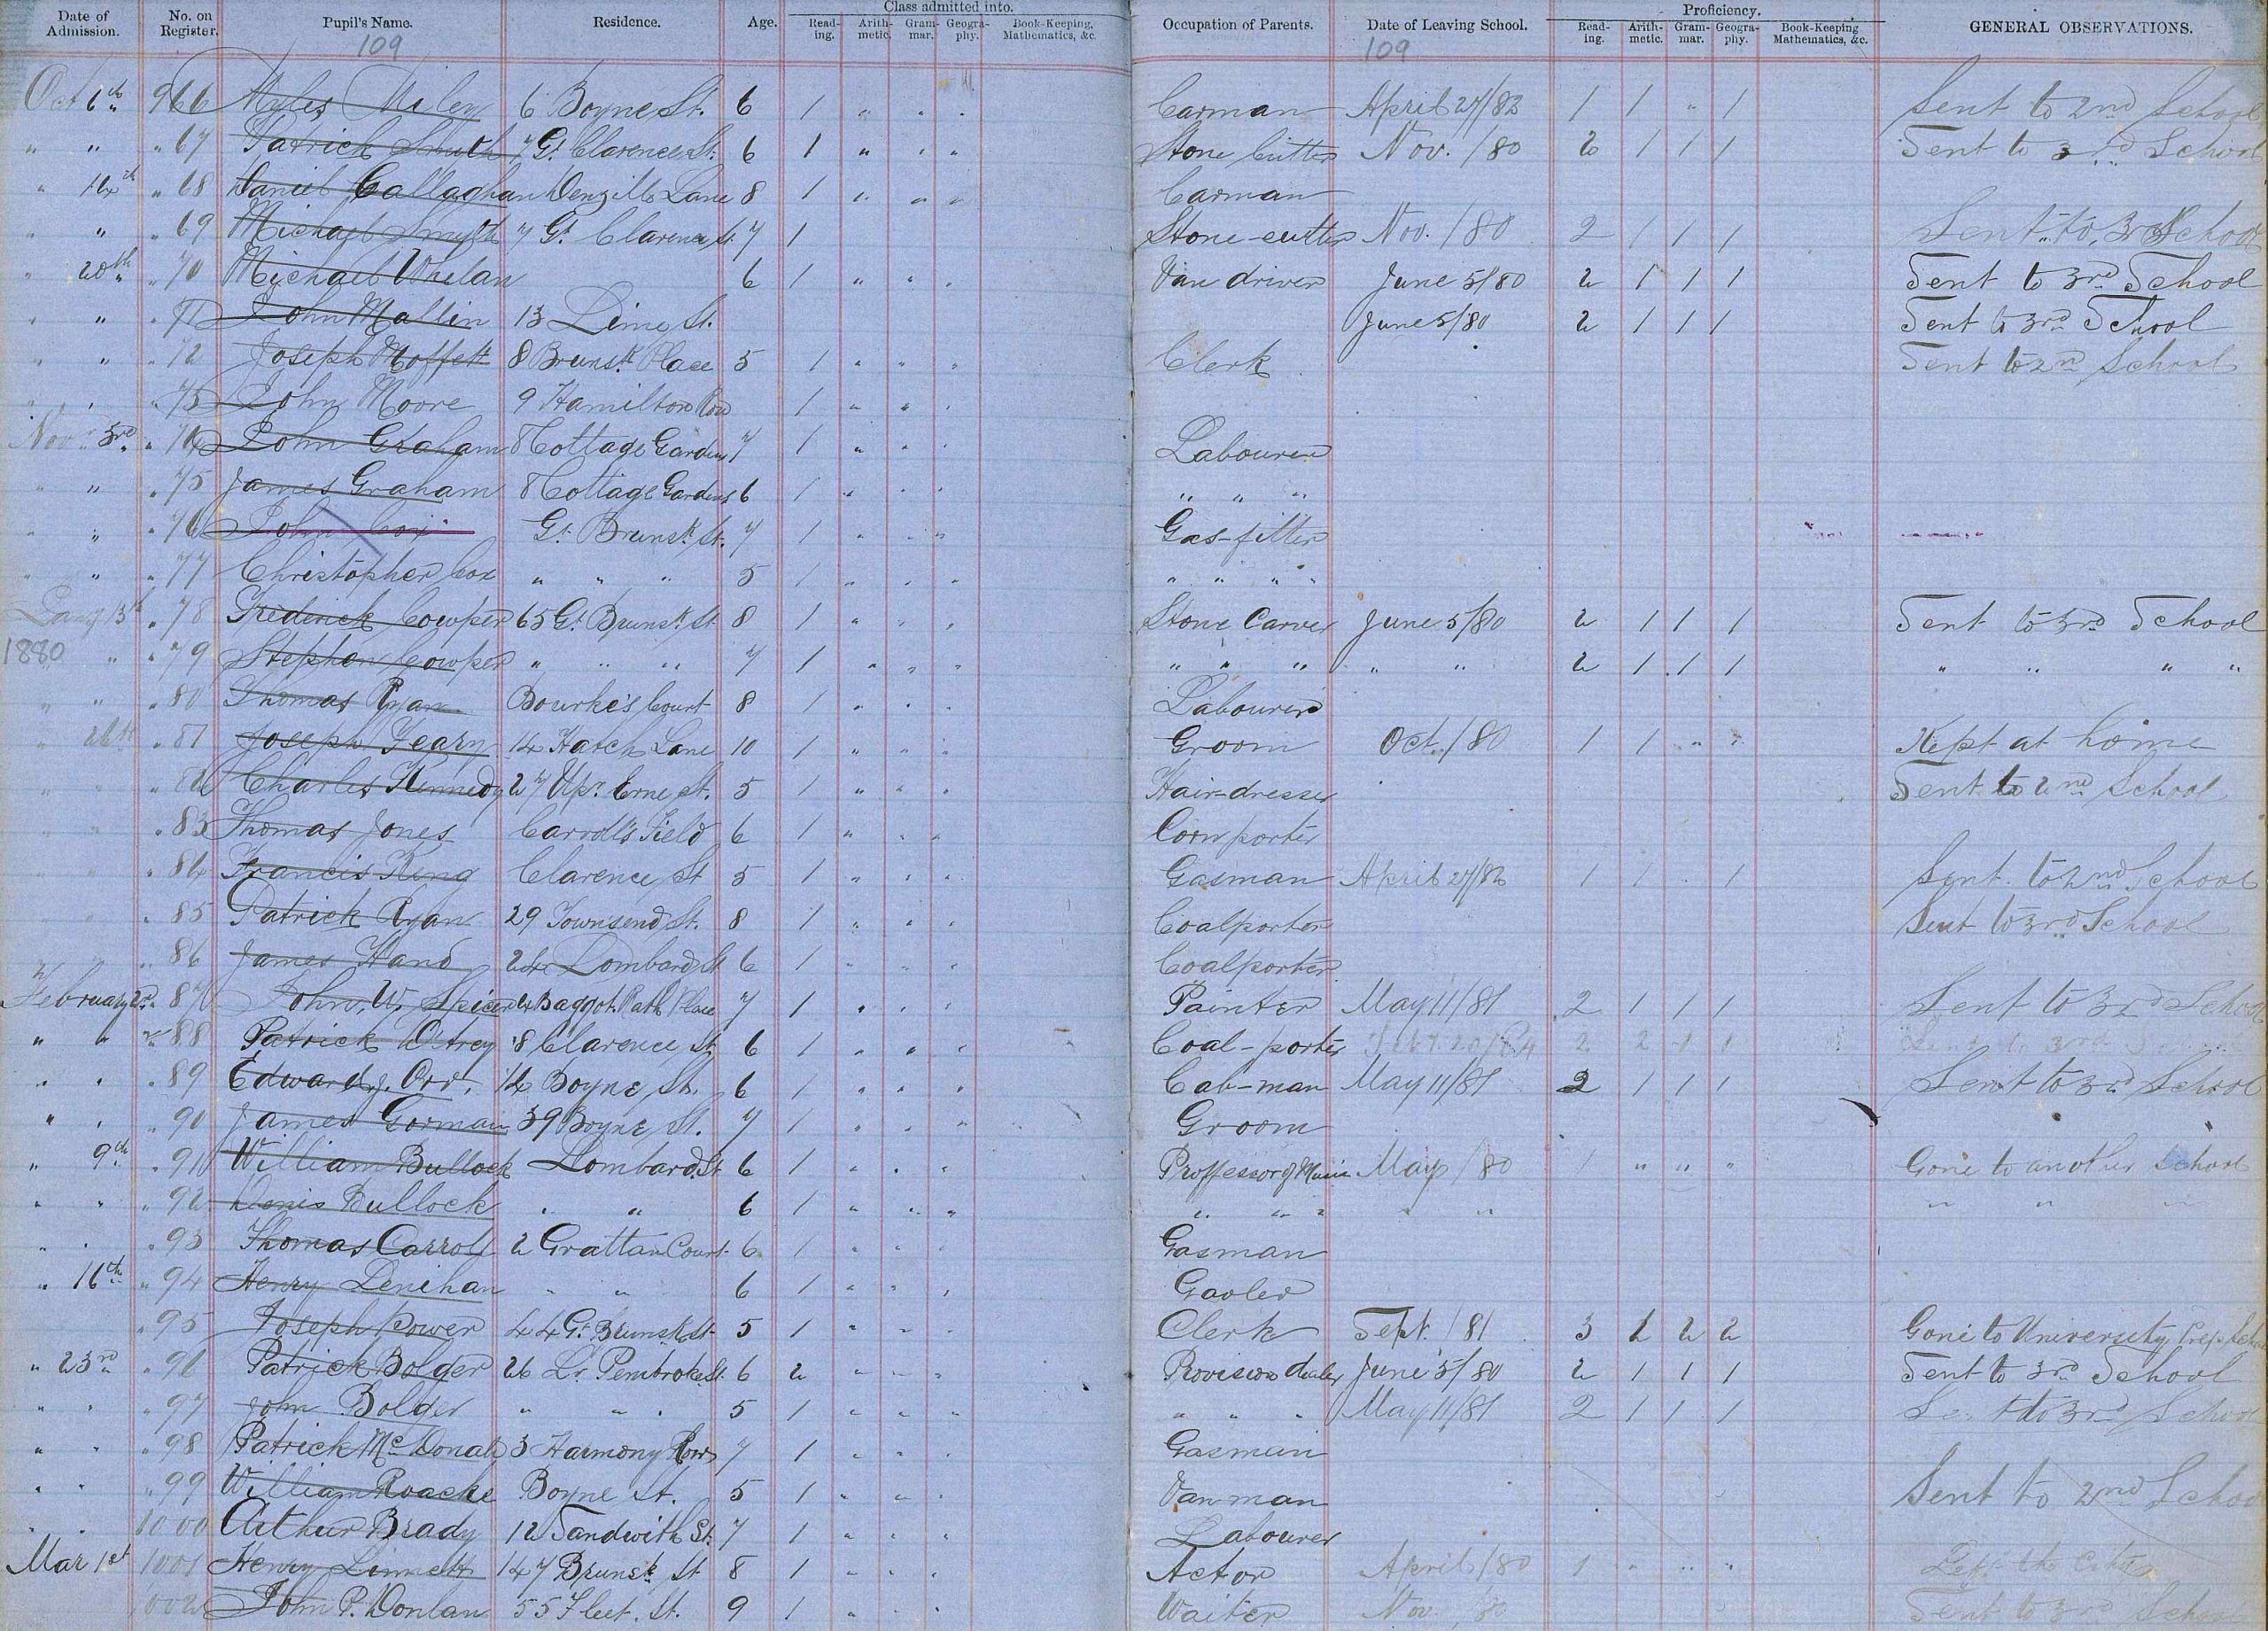 Date of Admission. No. on Register. Pupil's Name. Residence. Age. Class admitted into. Reading. Arithmetic. Grammar. Geography. Book-Keeping, Mathematics, &c. Occupation of Parents. Date of Leaving School. Proficiency. Reading. Arithmetic. Grammar. Geography. Book-Keeping Mathematics, &c. GENERAL OBSERVATIONS.
109 109
Oct 6th 966 Myles Miley 6 Boyne St. 6 1 " " " Carman April 27/82 1 1 " 1 Sent to 2nd School
" " " 67 Patrick Smyth 7 Gt. Clarence St. 6 1 " " " Stone Cutter Nov. /80 2 1 1 1 Sent to 3rd School
" 14th " 68 Daniel Callaghan Denzille Lane 8 1 " " " Carman
" " " 69 Michael Smyth 7 Gt. Clarence St. 7 1 Stone-cutter Nov. /80 2 1 1 1 Sent to 3rd School
" 20th " 70 Michael Whelan 6 1 " " " Van driver June 5/80 2 1 1 1 Sent to 3rd School
" " " 71 John Mallin 13 Lime St. June 5/80 2 1 1 1 Sent to 3rd School
" " " 72 Joseph Moffett 8 Brunsk. Place 5 1 " " " Clerk Sent to 2nd School
" " " 73 John Moore 9 Hamilton Row 1 " " "
Nov 3rd " 74 John Graham 8 Cottage Gardens 7 1 " " " Labourer
" " " 75 James Graham 8 Cottage Gardens 6 1 " " " " " "
" " " 76 John Cox Gt. Brunsk. St. 7 1 " " " Gas-fitter
" " " 77 Christopher Cox " " " 5 1 " " " " " " "
Jany 13th " 78 Frederick Cowper 65 Gt. Brunsk. St. 8 1 " " " Stone Carver June 5/80 2 1 1 1 Sent to 3rd School
1880 " " 79 Stephen Cowper " " " 7 1 " " " " " " " " 2 1 1 1 " " " "
" " " 80 Thomas Ryan Bourke's Court 8 1 " " " Labourer
" 26th " 81 Joseph Geary 14 Hatch Lane 10 1 " " " Groom Oct. /80 1 1 " " Kept at home
" " " 82 Charles Kennedy 27 Upr. Erne St. 5 1 " " " Hair-dresser Sent to 2nd School
" " " 83 Thomas Jones Carroll's Field 6 1 " " " Corn porter
" " " 84 Francis King Clarence St 5 1 " " " Gasman April 27/82 1 1 " 1 Sent to 2nd School
" " " 85 Patrick Ryan 29 Townsend St. 8 1 " " " Coalporter Sent to 3rd School
" 86 James Hand 24 Lombard St 6 1 " " " Coalporter
February 2nd " 87 John W. Spicer 2 Baggot Rath Place 7 1 " " " Painter May 11/81 2 1 1 1 Sent to 3rd School
" " " 88 Patrick 8 Clarence St 6 1 " " " Coal-porter 2 2 1 1 3rd
" " " 89 Edward J. Orr. 14 Boyne St. 6 1 " " " Cab-man May 11/81 2 1 1 1 Sent to 3rd School
" " " 90 James Gorman 39 Boyne St. 7 1 " " " Groom
" 9th " 91 William Bullock Lombard St 6 1 " " " Proffessor of Music May /80 1 " " " Gone to another School
" " " 92 Denis Bullock " " 6 1 " " " " " " " " " " "
" " " 93 Thomas Carroll 2 Grattan Court 6 1 " " " Gasman
" 16th " 94 Henry Lenihan " " 6 1 " " " Gaoler
" 95 Joseph Power 44 Gt. Brunsk. St. 5 1 " " " Clerk Sept. /81 3 2 2 2 Gone to University Prep. School
" 23rd " 96 Patrick Bolger 26 Lr. Pembroke St. 6 2 " " " Provision dealer June 5/80 2 1 1 1 Sent to 3rd School
" " " 97 John Bolger " " " 5 1 " " " " " " May 11/81 2 1 1 1 Sent to 3rd School
" " " 98 Patrick McDonald 3 Harmony Row 7 1 " " " Gasman
" " " 99 William Roacke Boyne St. 5 1 " " " Van man Sent to 2nd School
" " 1000 Arthur Brady 12 Sandwith St. 7 1 " " " Labourer
Mar 1st 1001 Henry Linnett 147 Brunsk. St 8 1 " " " Actor April /80 1 " " " Left the City
1002 John P. Donlan 55 Fleet. St. 9 1 " " " Waiter Nov. /80 Sent to 3rd School